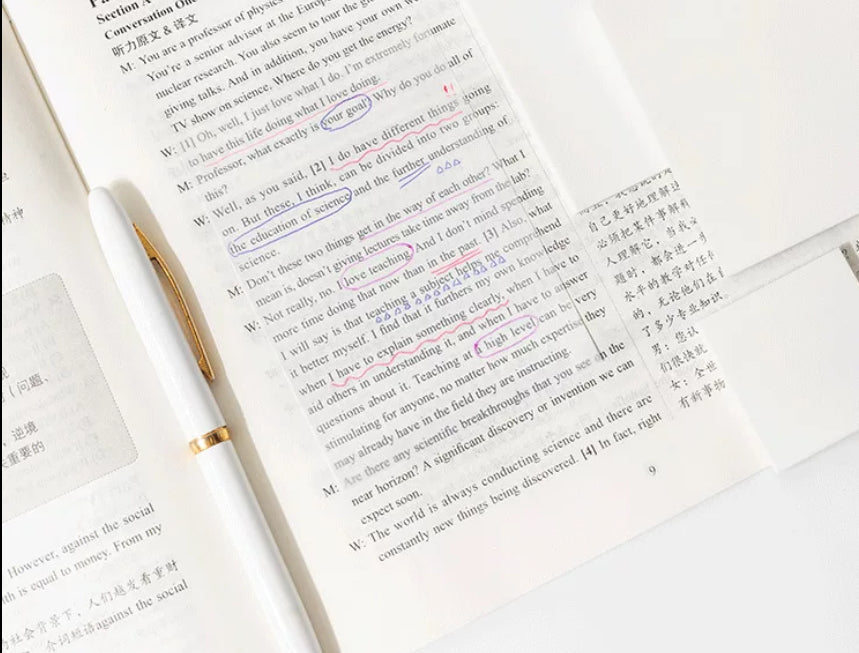 Section A
Conversation One
听力原文 & 译文
M: You are a professor of physics
You're a senior advisor at the Europ
nuclear research. You also seem to tour the g
giving talks. And in addition, you have your own
TV show on science. Where do you get the energy?
W: [1] Oh, well, I just love what I do. I'm extremely fortunate
to have this life doing what I love doing.
M: Professor, what exactly is your goal? Why do you do all of
this?
W: Well, as you said, [2] I do have different things going
on. But these, I think, can be divided into two groups:
the education of science and the further understanding of
science.
M: Don't these two things get in the way of each other? What I
mean is, doesn't giving lectures take time away from the lab?
W: Not really, no. I love teaching. And I don't mind spending
more time doing that now than in the past. [3] Also, what
I will say is that teaching a subject helps me comprehend
it better myself. I find that it furthers my own knowledge
when I have to explain something clearly, when I have to
aid others in understanding it, and when I have to answer
questions about it. Teaching at a high level can be very
stimulating for anyone, no matter how much expertise they
may already have in the field they are instructing.
M: Are there any scientific breakthroughs that you see on the
near horizon? A significant discovery or invention we can
expect soon.
W: The world is always conducting science and there are
constantly new things being discovered. [4] In fact, right
9
自己更好地理解这
必须把某件事解释
人理解它，当我必
题时，都会进一步
水平的教学对任何
的，无论他们在
了多少专业知识
男：您认
们很快就
女：全世
有新事物
精神
（问题、
，逆境
重要的
However, against the social
th is equal to money. From my
社会背景下，人们越发看重财
介词短语against the social